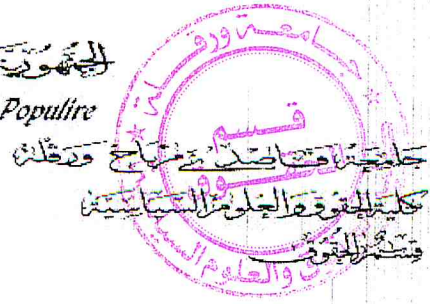 الجمهورية
Populire
جامعة قاصدي مرباح ورقلة
كلية الحقوق والعلوم السياسية
قسم الحقوق
جامعة ورقلة
قسم
الحقوق